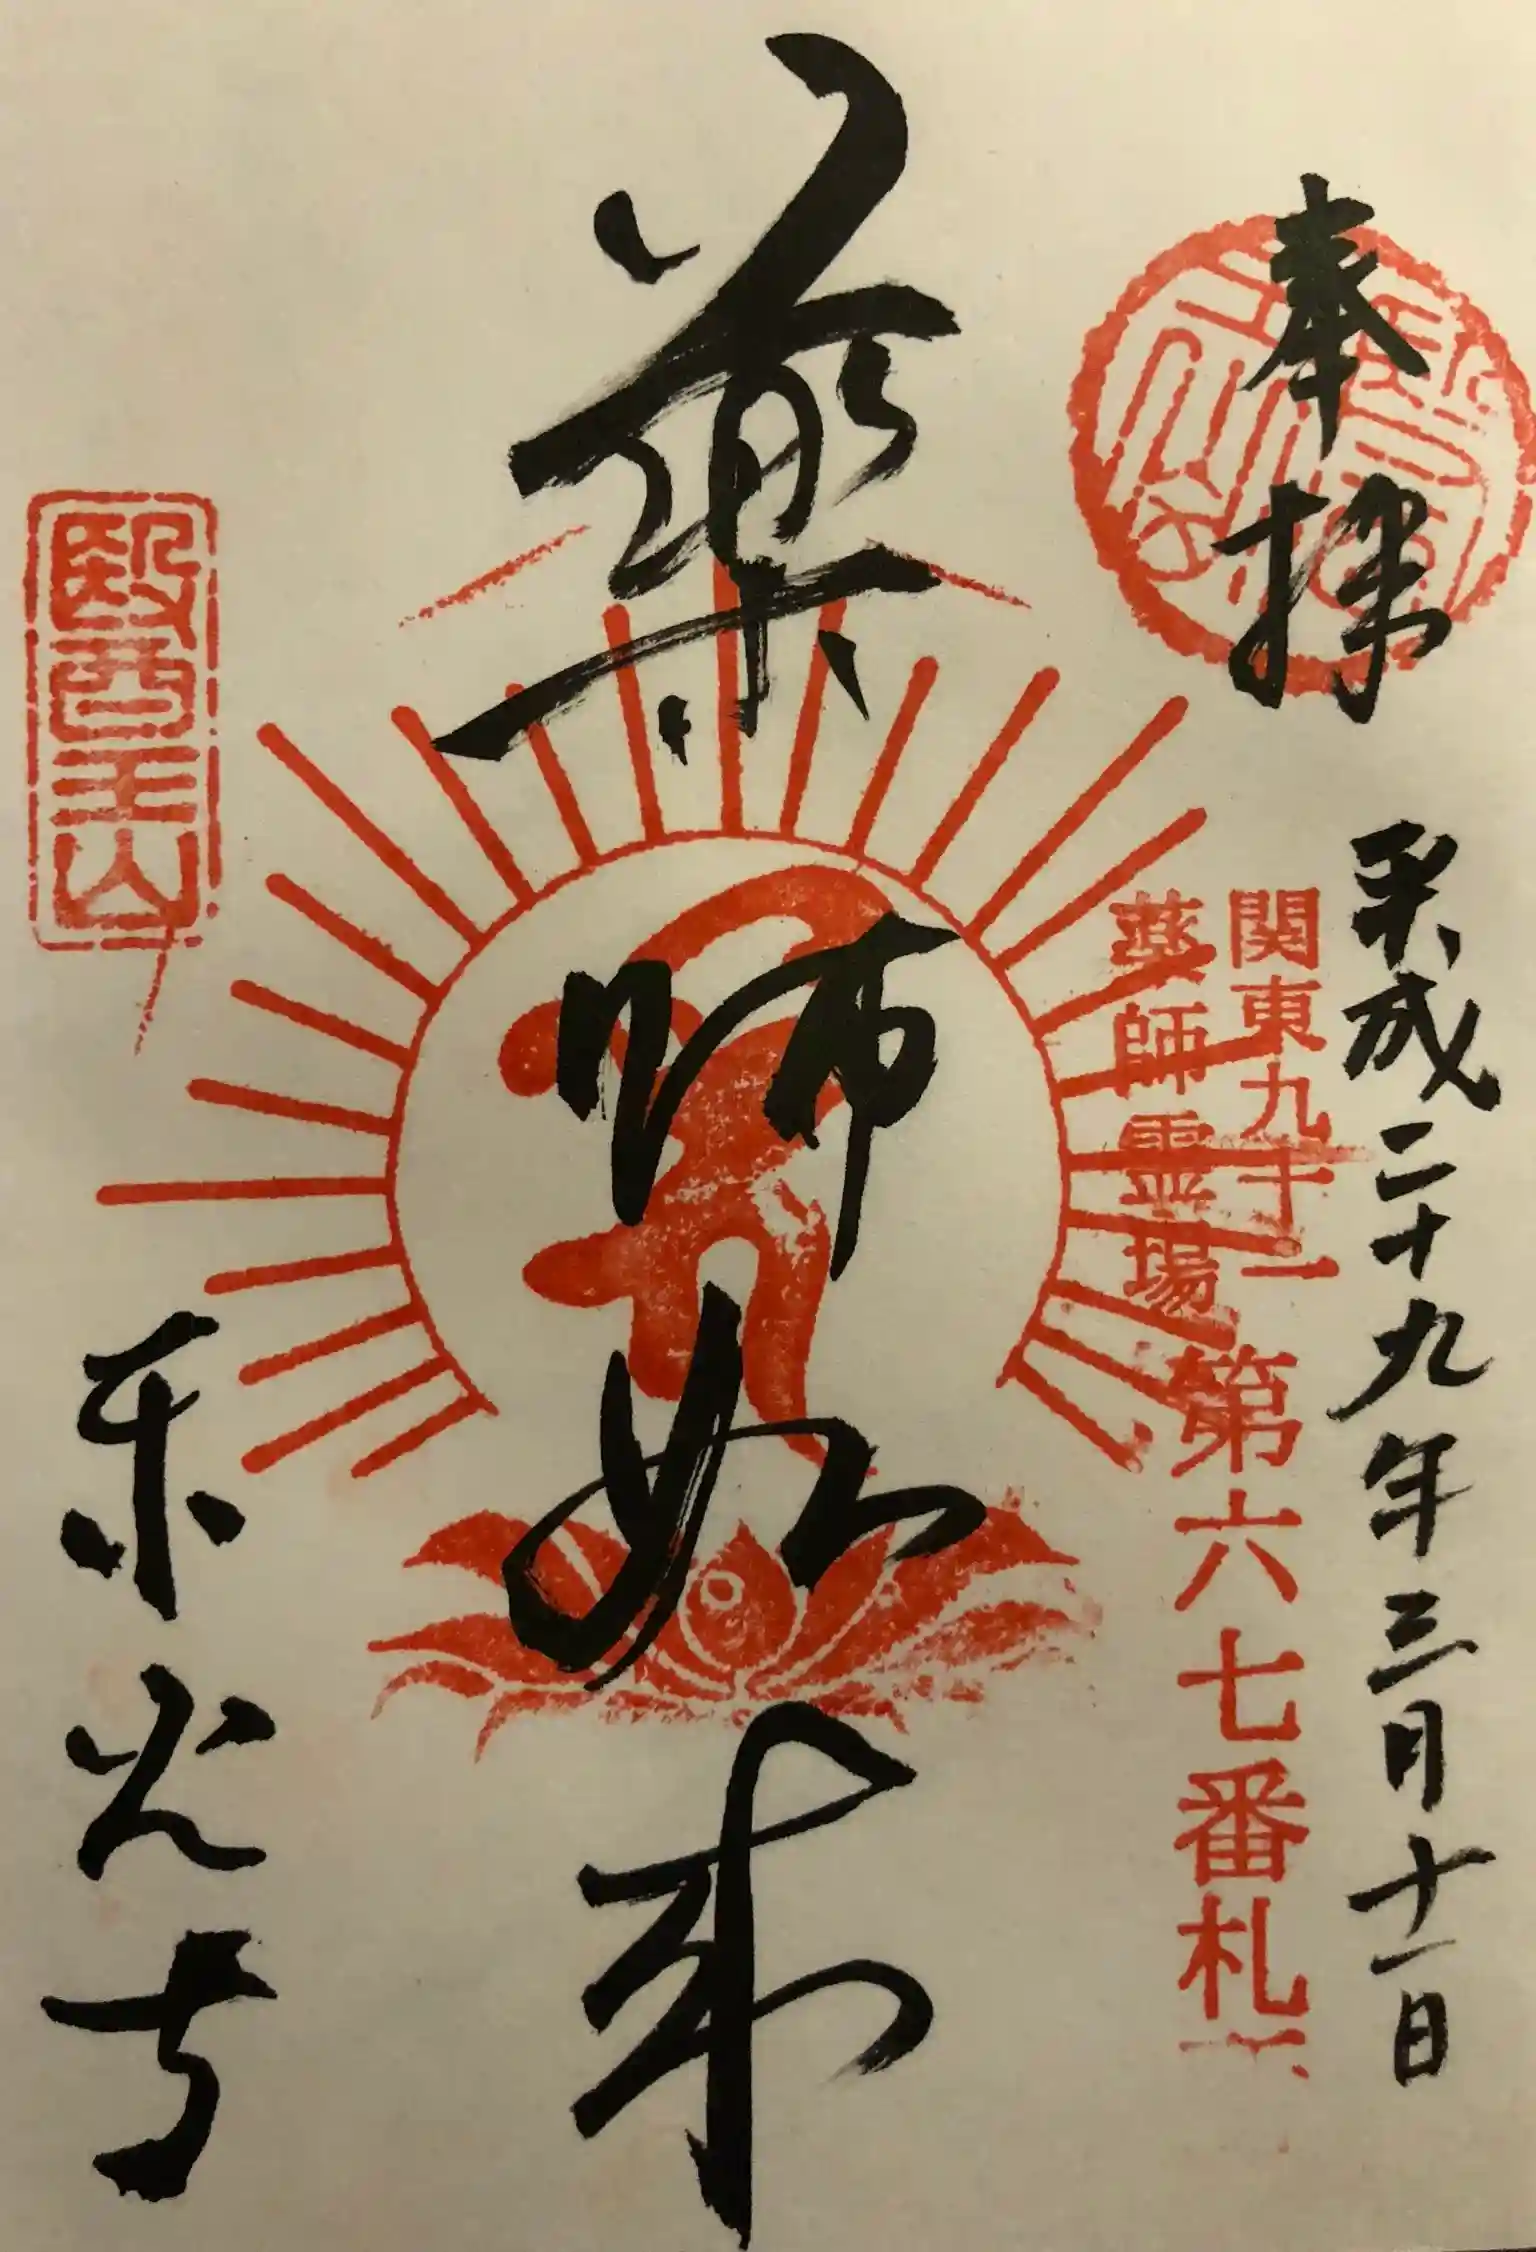 奉拝
平成二十九年三月十一日
関東九十一
薬師霊場
第六七番札
薬師如来
醫王山
東光寺